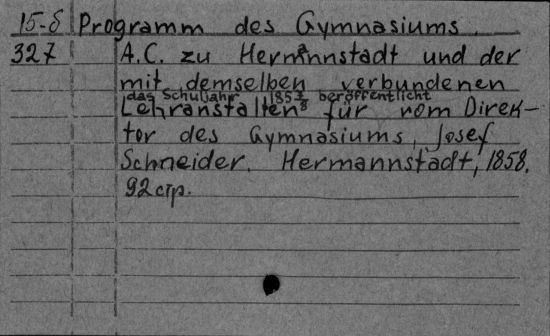 15-8 Programm des Gymnasiums
327 A.C. zu Hermannstadt und der
mit demselben verbundenen
das Schuljahr 1857/8 beröffentlicht
Lehranstalten für vom Direk-
tor des Gymnasiums, Josef
Schneider. Hermannstadt, 1858.
92 стр.